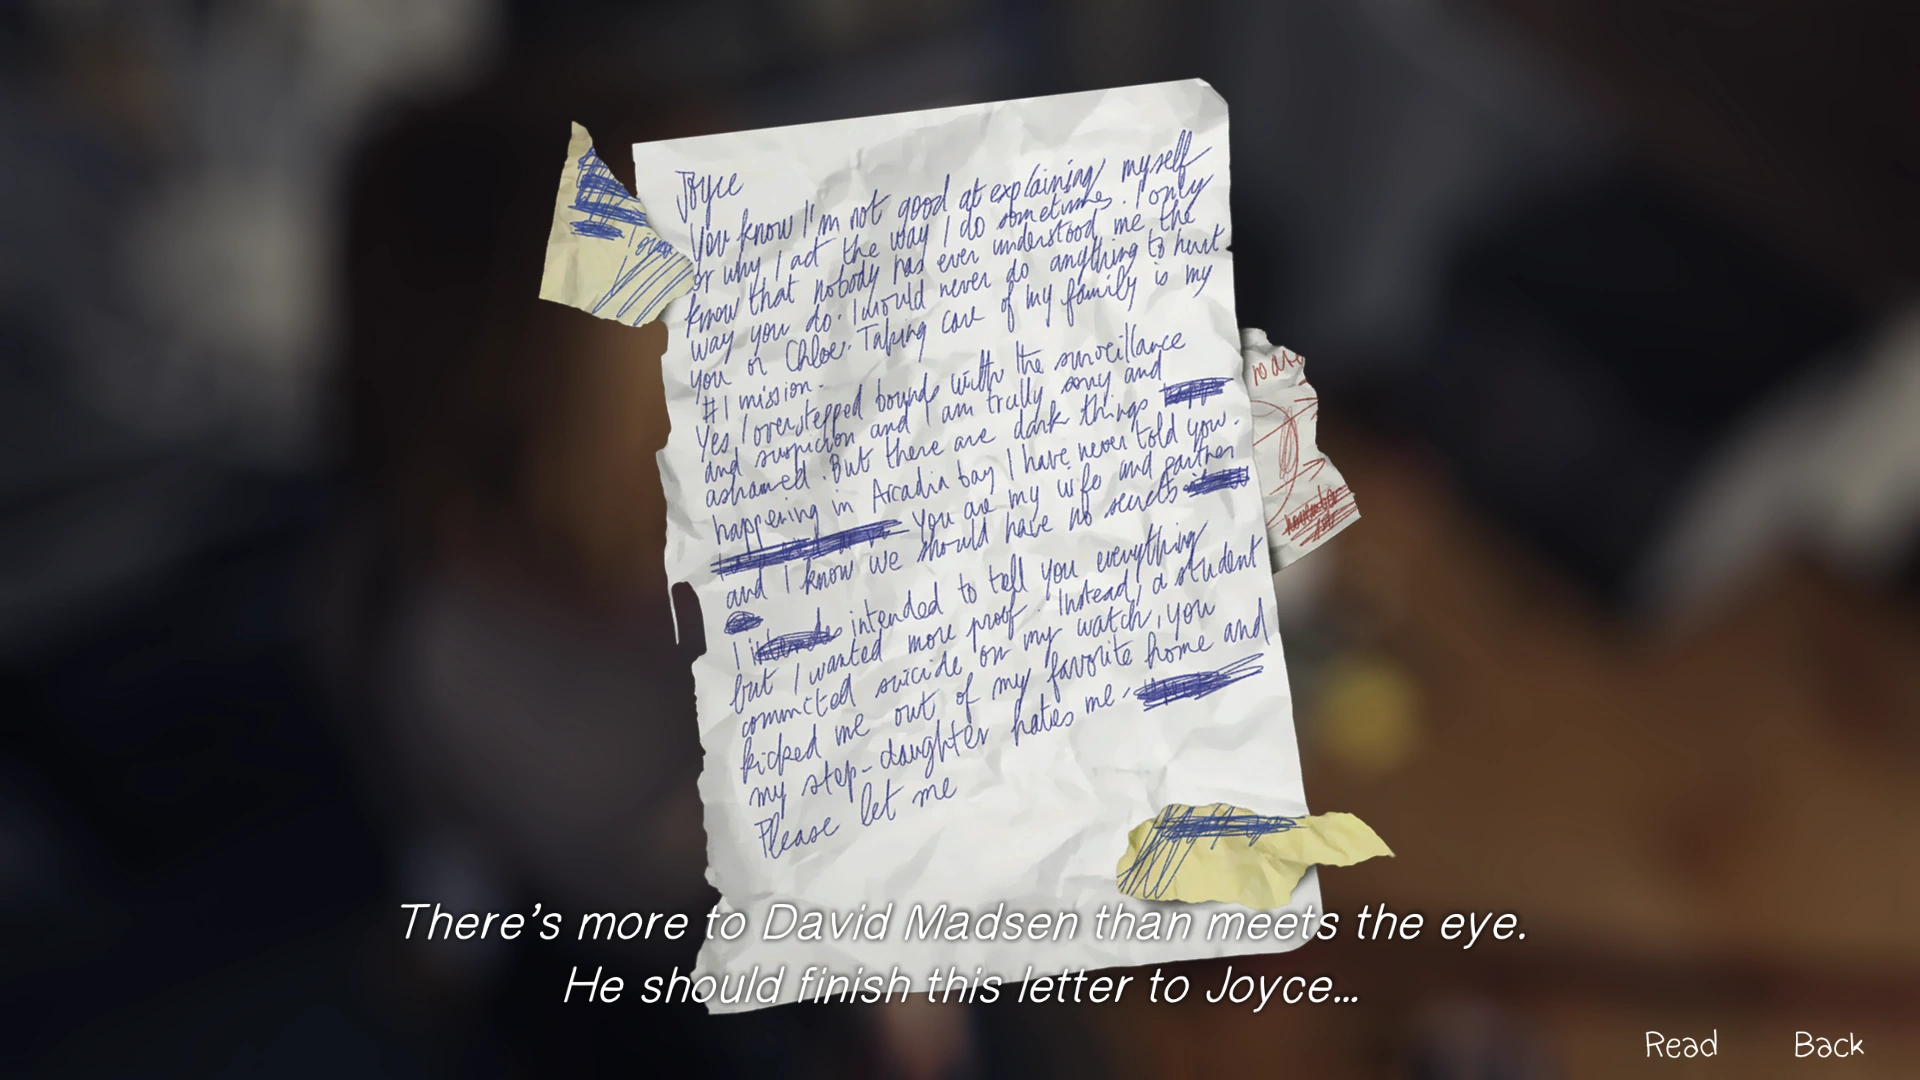 Joyce
You know I'm not good at explaining myself
or why I act the way I do sometimes. I only
know that nobody has ever understood me the
way you do. I would never do anything to hurt
you or Chloe. Taking care of my family is my
#1 mission.
Yes I overstepped bounds with the surveillance
and suspicion and I am trully sorry and
ashamed. But there are dark things
happening in Arcadia bay I have never told you.
You are my wife and partner
and I know we should have no secrets
I intended to tell you everything
but I wanted more proof. Instead, a student
committed suicide on my watch, you
kicked me out of my favorite home and
my step-daughter hates me.
Please let me
There's more to David Madsen than meets the eye.
He should finish this letter to Joyce...
Read Back